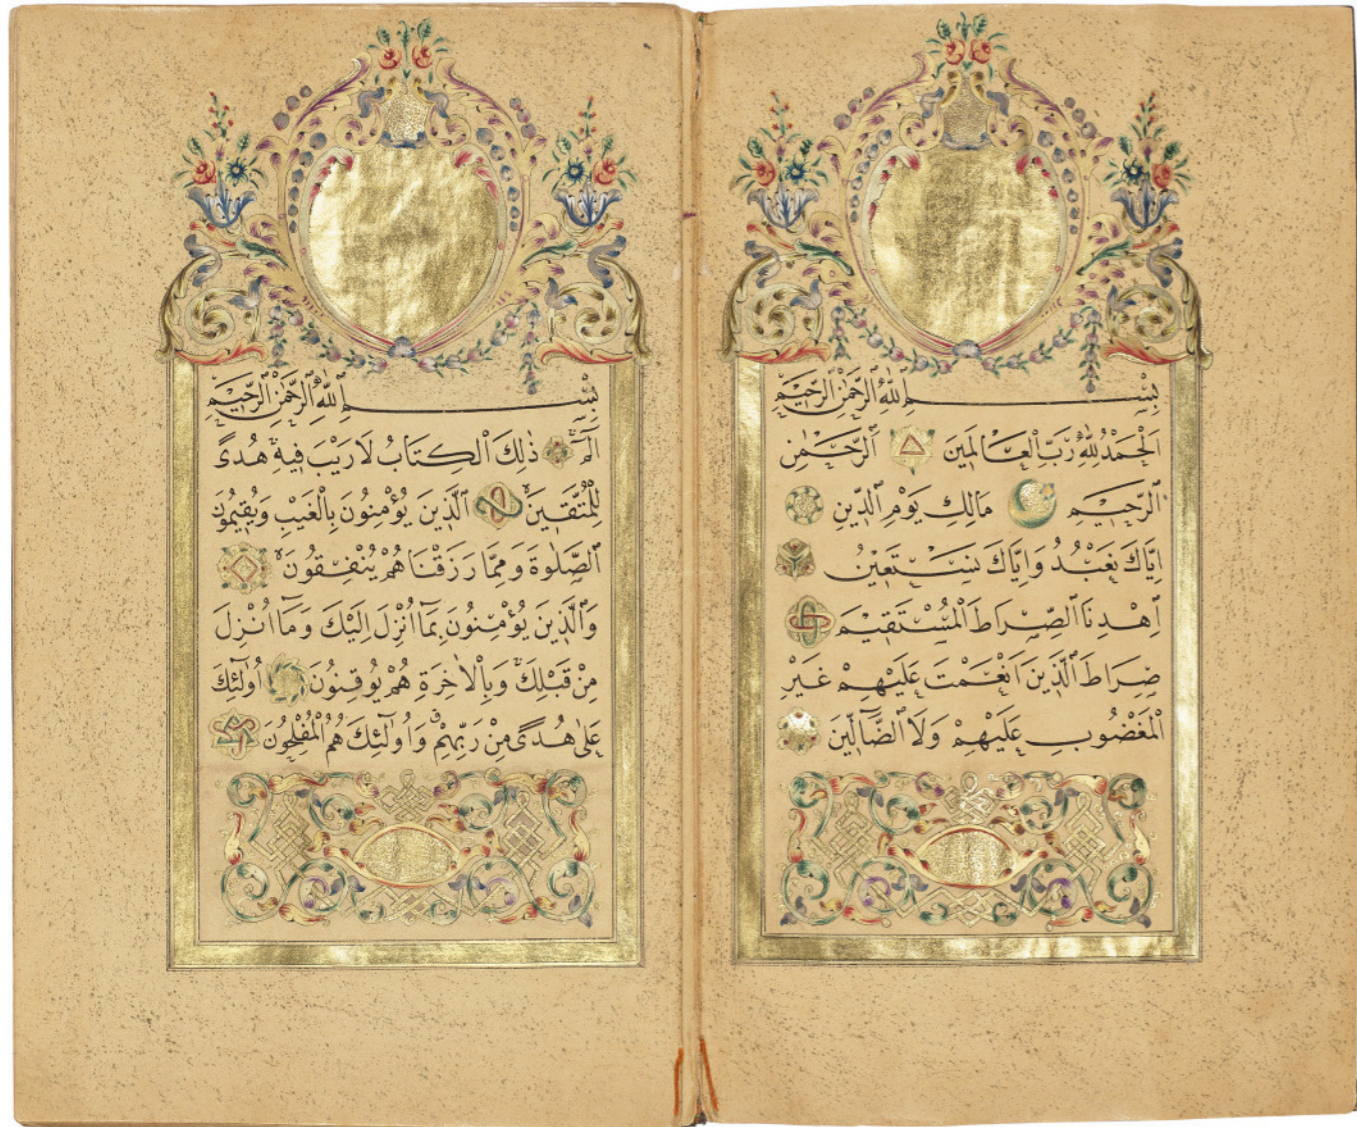 بِسْمِ ٱللّٰهِ ٱلرَّحْمٰنِ ٱلرَّحٖيمِ
اَلْحَمْدُ لِلّٰهِ رَبِّ ٱلْعَالَمٖينَ ٱلرَّحْمٰنِ
ٱلرَّحٖيمِ مَالِكِ يَوْمِ ٱلدّٖينِ
اِيَّاكَ نَعْبُدُ وَاِيَّاكَ نَسْتَعٖينُ
اِهْدِنَا ٱلصِّرَاطَ ٱلْمُسْتَقٖيمَ
صِرَاطَ ٱلَّذٖينَ اَنْعَمْتَ عَلَيْهِمْ غَيْرِ
ٱلْمَغْضُوبِ عَلَيْهِمْ وَلَا ٱلضَّٓالّٖينَ
بِسْمِ ٱللّٰهِ ٱلرَّحْمٰنِ ٱلرَّحٖيمِ
الٓمٓ ذٰلِكَ ٱلْكِتَابُ لَا رَيْبَ فٖيهِ هُدًى
لِلْمُتَّقٖينَ ٱلَّذٖينَ يُؤْمِنُونَ بِالْغَيْبِ وَيُقٖيمُونَ
ٱلصَّلٰوةَ وَمِمَّا رَزَقْنَاهُمْ يُنْفِقُونَ
وَٱلَّذٖينَ يُؤْمِنُونَ بِمَٓا اُنْزِلَ اِلَيْكَ وَمَٓا اُنْزِلَ
مِنْ قَبْلِكَ وَبِالْاٰخِرَةِ هُمْ يُوقِنُونَ اُولٰٓئِكَ
عَلٰى هُدًى مِنْ رَبِّهِمْ وَاُولٰٓئِكَ هُمُ ٱلْمُفْلِحُونَ